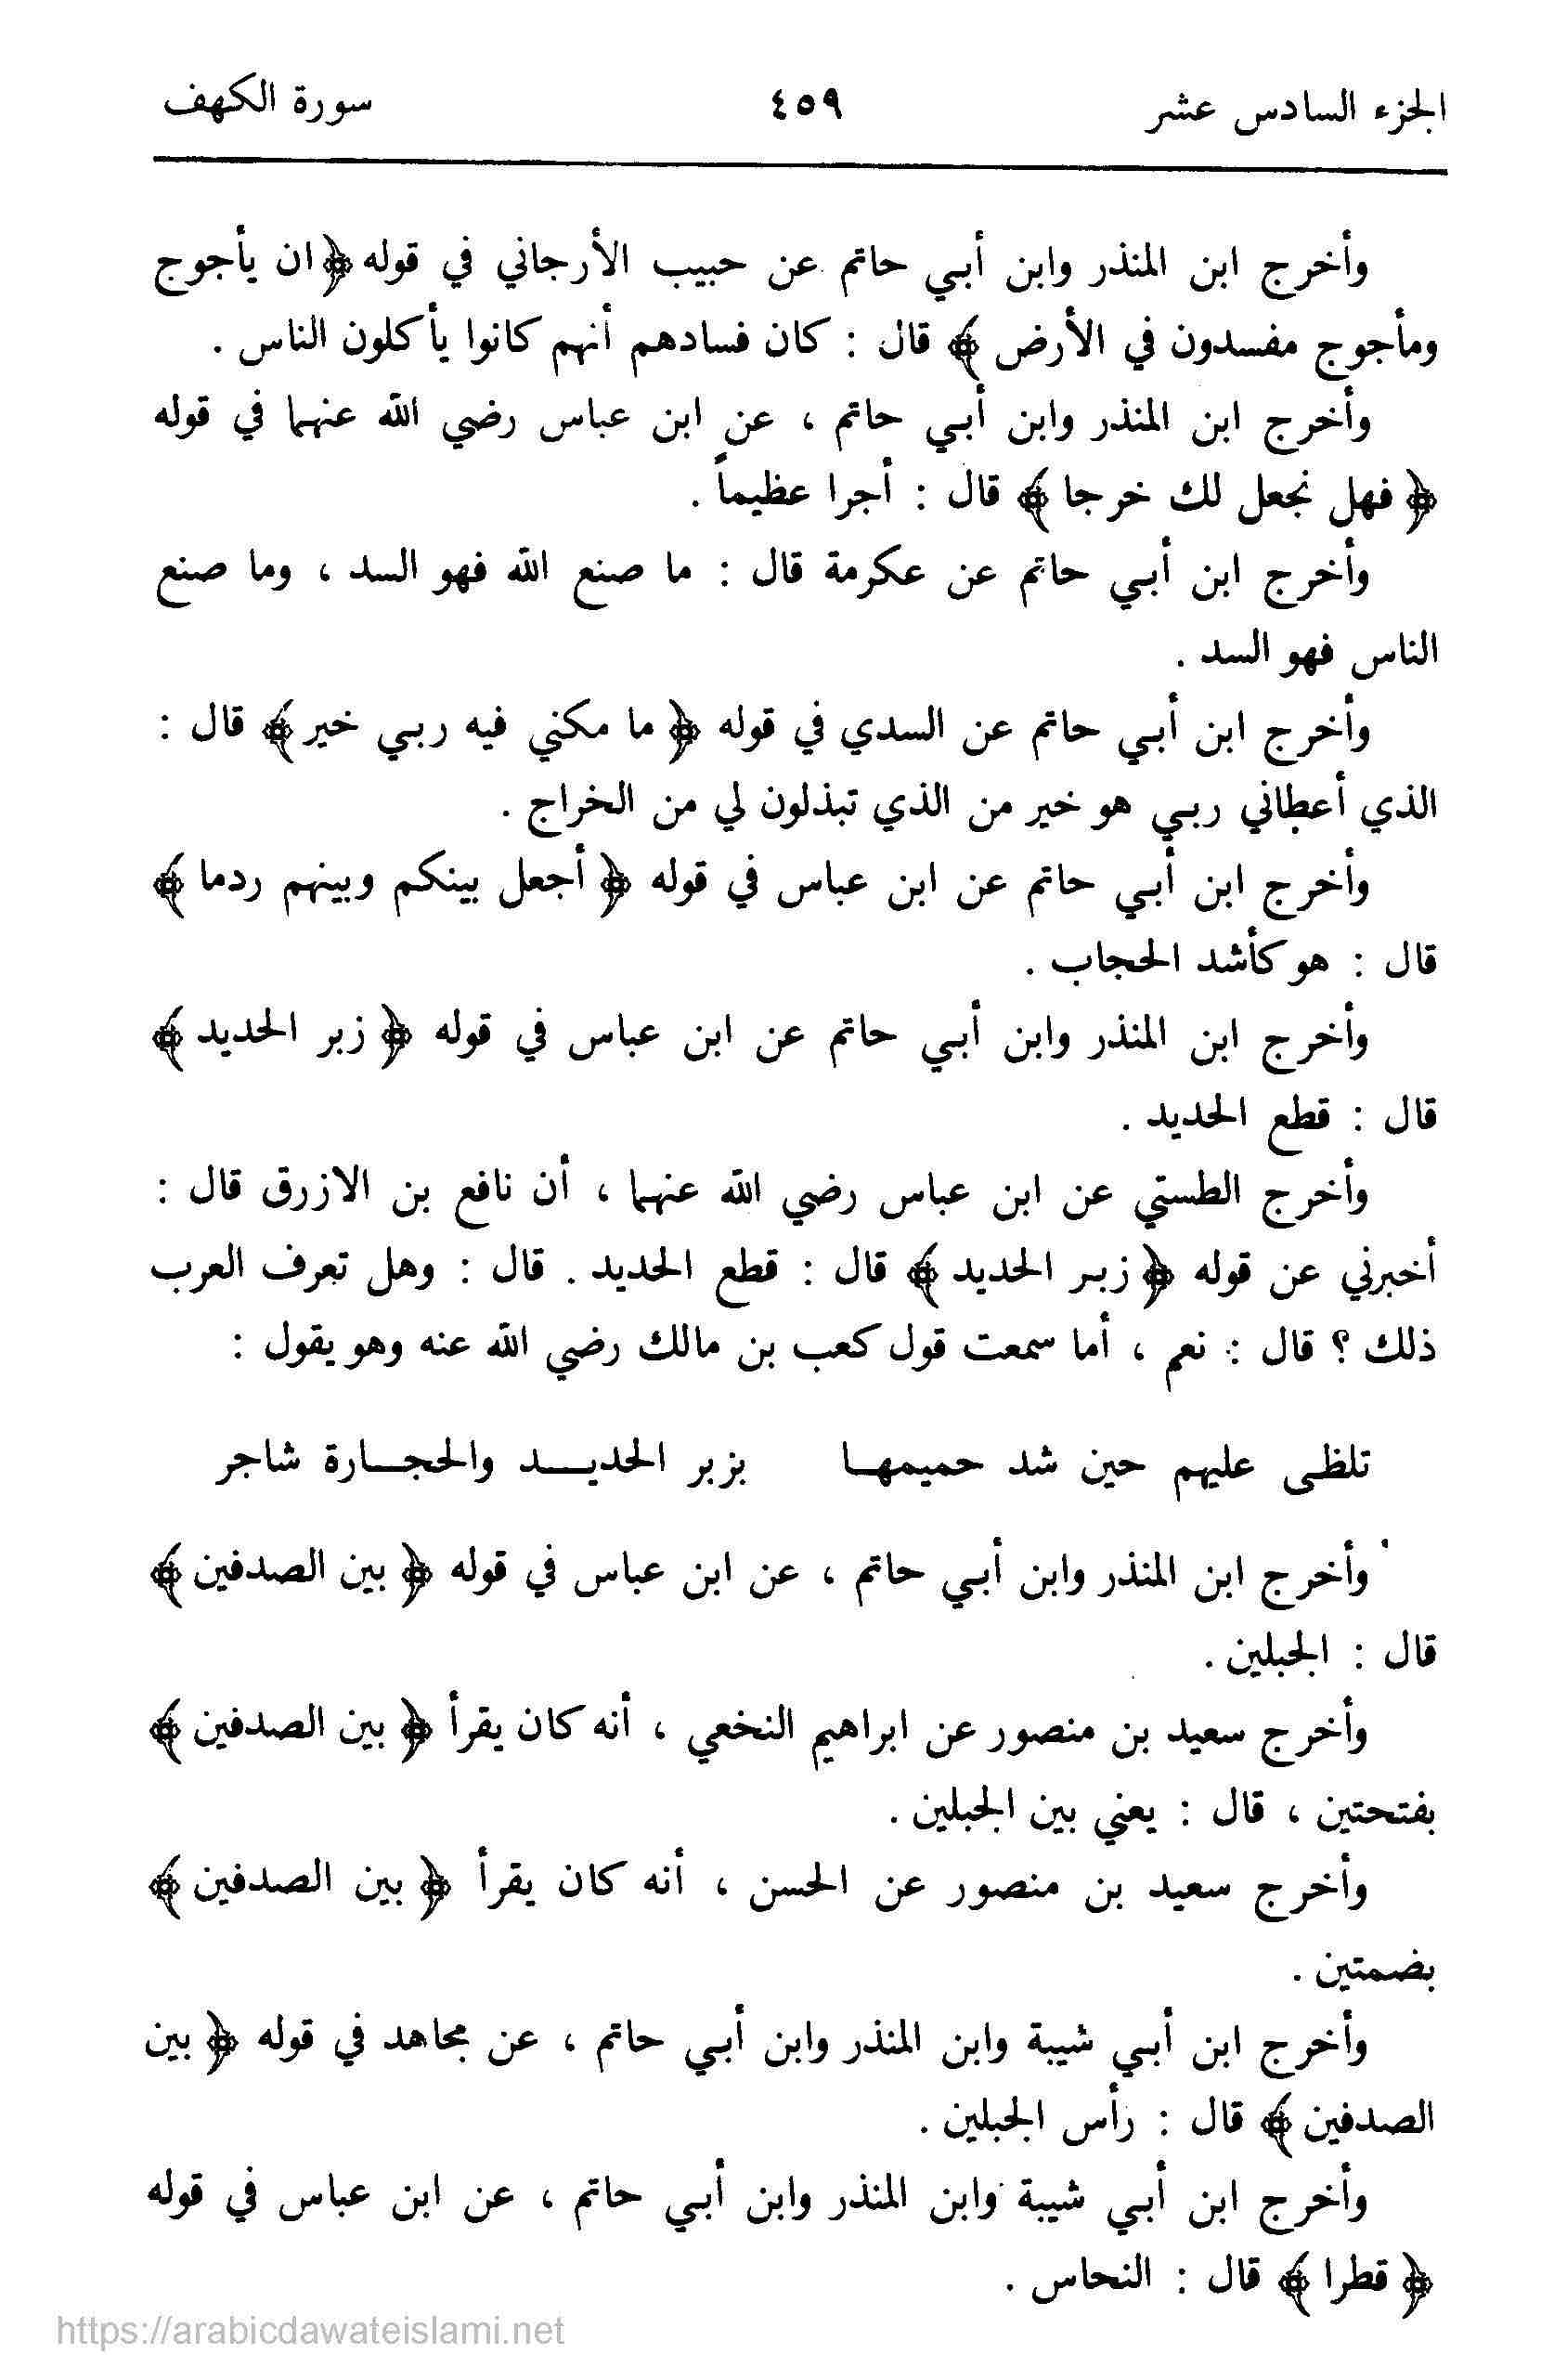 الجزء السادس عشر ٤٥٩ سورة الكهف
وأخرج ابن المنذر وابن أبي حاتم عن حبيب الأرجاني في قوله ﴿ ان يأجوج
ومأجوج مفسدون في الأرض ﴾ قال : كان فسادهم أنهم كانوا يأكلون الناس .
وأخرج ابن المنذر وابن أبي حاتم ، عن ابن عباس رضي الله عنهما في قوله
﴿ فهل نجعل لك خرجا ﴾ قال : أجرا عظيماً .
وأخرج ابن أبي حاتم عن عكرمة قال : ما صنع الله فهو السد ، وما صنع
الناس فهو السد .
وأخرج ابن أبي حاتم عن السدي في قوله ﴿ ما مكني فيه ربي خير ﴾ قال :
الذي أعطاني ربي هو خير من الذي تبذلون لي من الخراج .
وأخرج ابن أبي حاتم عن ابن عباس في قوله ﴿ أجعل بينكم وبينهم ردما ﴾
قال : هو كأشد الحجاب .
وأخرج ابن المنذر وابن أبي حاتم عن ابن عباس في قوله ﴿ زبر الحديد ﴾
قال : قطع الحديد .
وأخرج الطستي عن ابن عباس رضي الله عنهما ، أن نافع بن الازرق قال :
أخبرني عن قوله ﴿ زبر الحديد ﴾ قال : قطع الحديد . قال : وهل تعرف العرب
ذلك ؟ قال : نعم ، أما سمعت قول كعب بن مالك رضي الله عنه وهو يقول :
تلظى عليهم حين شد حميمها بزبر الحديد والحجارة شاجر
وأخرج ابن المنذر وابن أبي حاتم ، عن ابن عباس في قوله ﴿ بين الصدفين ﴾
قال : الجبلين .
وأخرج سعيد بن منصور عن ابراهيم النخعي ، أنه كان يقرأ ﴿ بين الصدفين ﴾
بفتحتين ، قال : يعني بين الجبلين .
وأخرج سعيد بن منصور عن الحسن ، أنه كان يقرأ ﴿ بين الصدفين ﴾
بضمتين .
وأخرج ابن أبي شيبة وابن المنذر وابن أبي حاتم ، عن مجاهد في قوله ﴿ بين
الصدفين ﴾ قال : رأس الجبلين .
وأخرج ابن أبي شيبة وابن المنذر وابن أبي حاتم ، عن ابن عباس في قوله
﴿ قطرا ﴾ قال : النحاس .
https://arabicdawateislami.net